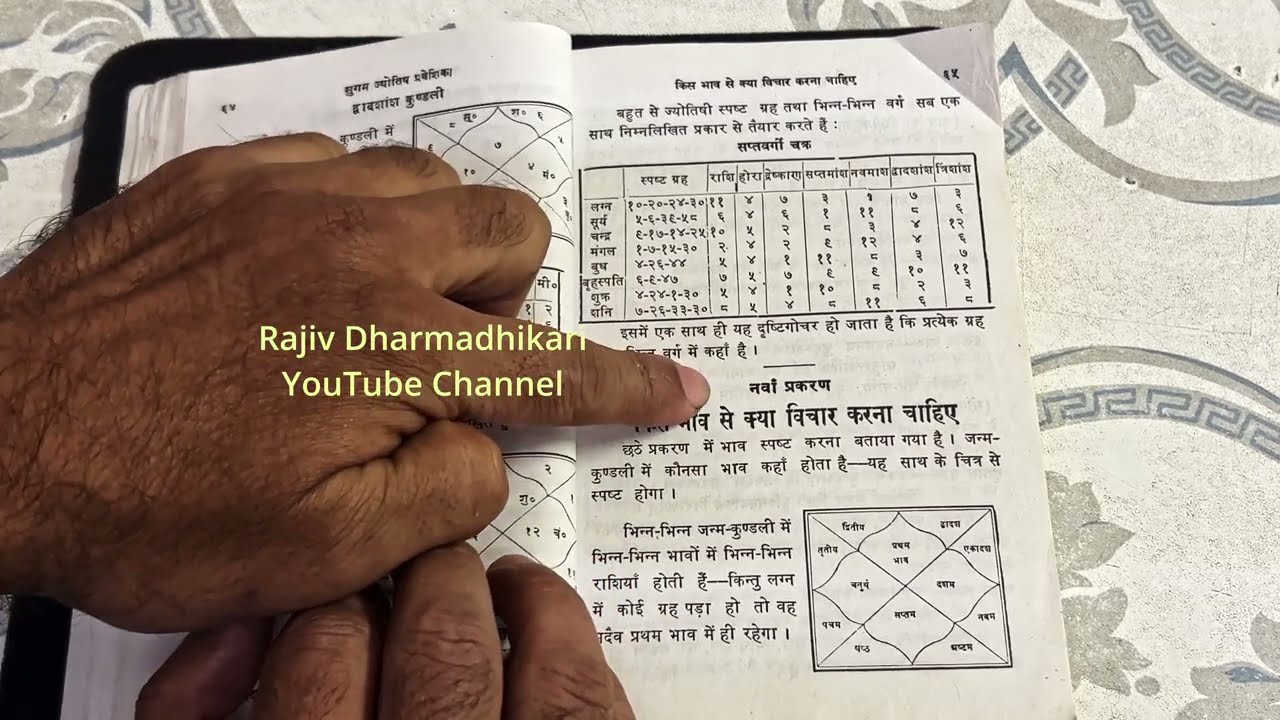 सुगम ज्योतिष प्रवेशिका
६४
द्वादशांश कुण्डली
कुण्डली में
८ सू० श० ६
७ ५
१० ४ मं०
मी०
१ २
२
गु०
१२ चं०
Rajiv Dharmadhikari
YouTube Channel
किस भाव से क्या विचार करना चाहिए ६५
बहुत से ज्योतिषी स्पष्ट ग्रह तथा भिन्न-भिन्न वर्ग सब एक
साथ निम्नलिखित प्रकार से तैयार करते हैं :
सप्तवर्गी चक्र
स्पष्ट ग्रह राशि होरा द्रेष्काण सप्तमांश नवमांश द्वादशांश त्रिंशांश
लग्न १०-२०-२४-३० ११ ४ ७ ३ १ ७ ३
सूर्य ५-६-३९-५८ ६ ४ ६ १ ११ ८ ६
चन्द्र ९-१७-१४-२५ १० ५ २ ८ ३ ४ १२
मंगल १-७-१५-३० २ ४ २ ९ १२ ४ ६
बुध ४-२६-४४ ५ ४ १ ११ ८ ३ ७
बृहस्पति ६-९-४७ ७ ५ ७ ९ ९ १० ११
शुक्र ४-२४-१-३० ५ ४ १ १० ८ २ ३
शनि ७-२६-३३-३० ८ ५ ४ ८ ११ ६ ८
इसमें एक साथ ही यह दृष्टिगोचर हो जाता है कि प्रत्येक ग्रह
वर्ग में कहाँ है ।
नवाँ प्रकरण
भाव से क्या विचार करना चाहिए
छठे प्रकरण में भाव स्पष्ट करना बताया गया है । जन्म-
कुण्डली में कौनसा भाव कहाँ होता है—यह साथ के चित्र से
स्पष्ट होगा ।
भिन्न-भिन्न जन्म-कुण्डली में
भिन्न-भिन्न भावों में भिन्न-भिन्न
राशियाँ होती हैं—किन्तु लग्न
में कोई ग्रह पड़ा हो तो वह
दैव प्रथम भाव में ही रहेगा ।
द्वितीय द्वादश
तृतीय प्रथम एकादश
भाव
चतुर्थ दशम
पंचम सप्तम नवम
षष्ठ अष्टम